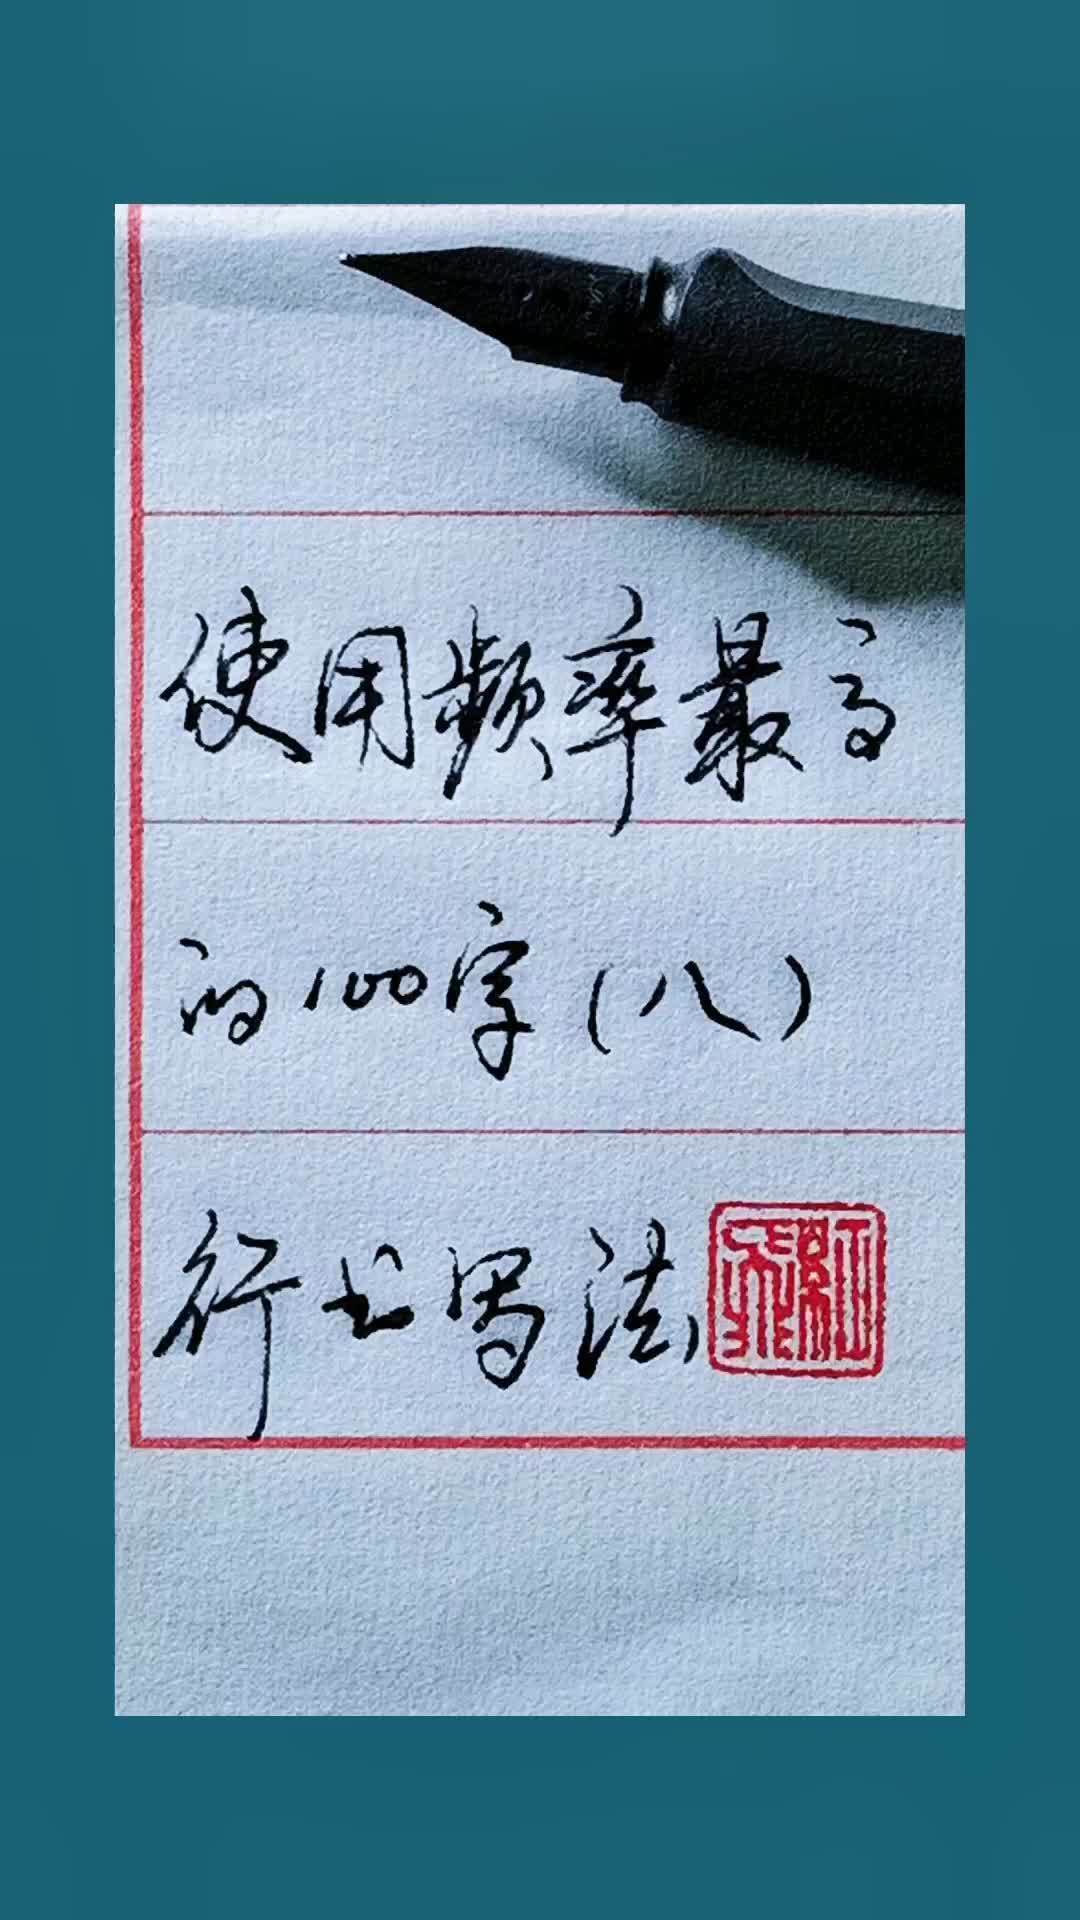 使用频率最高
的100字(八)
行书写法